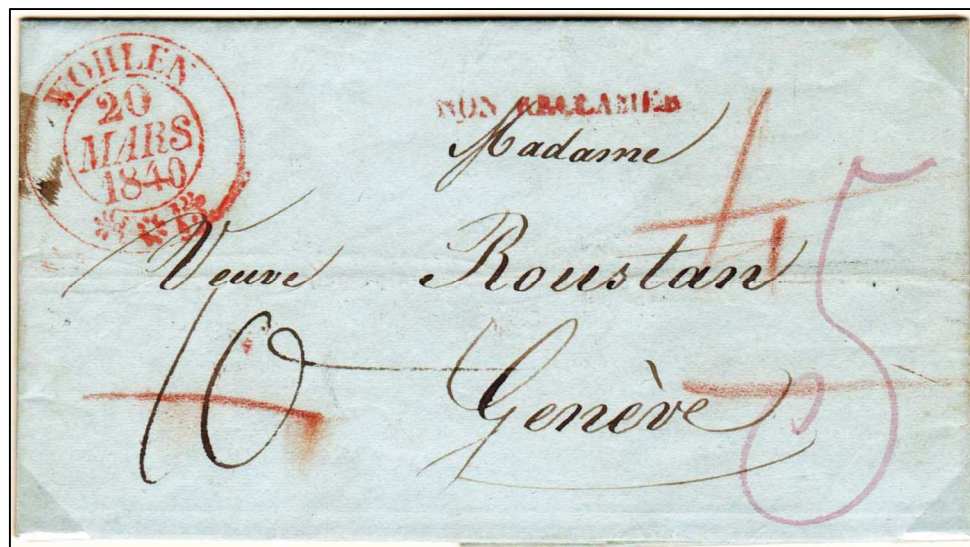 WOHLEN
20
MARS
1840
NON RECLAMÉE
Madame
Veuve Roustan
10
Genève
5